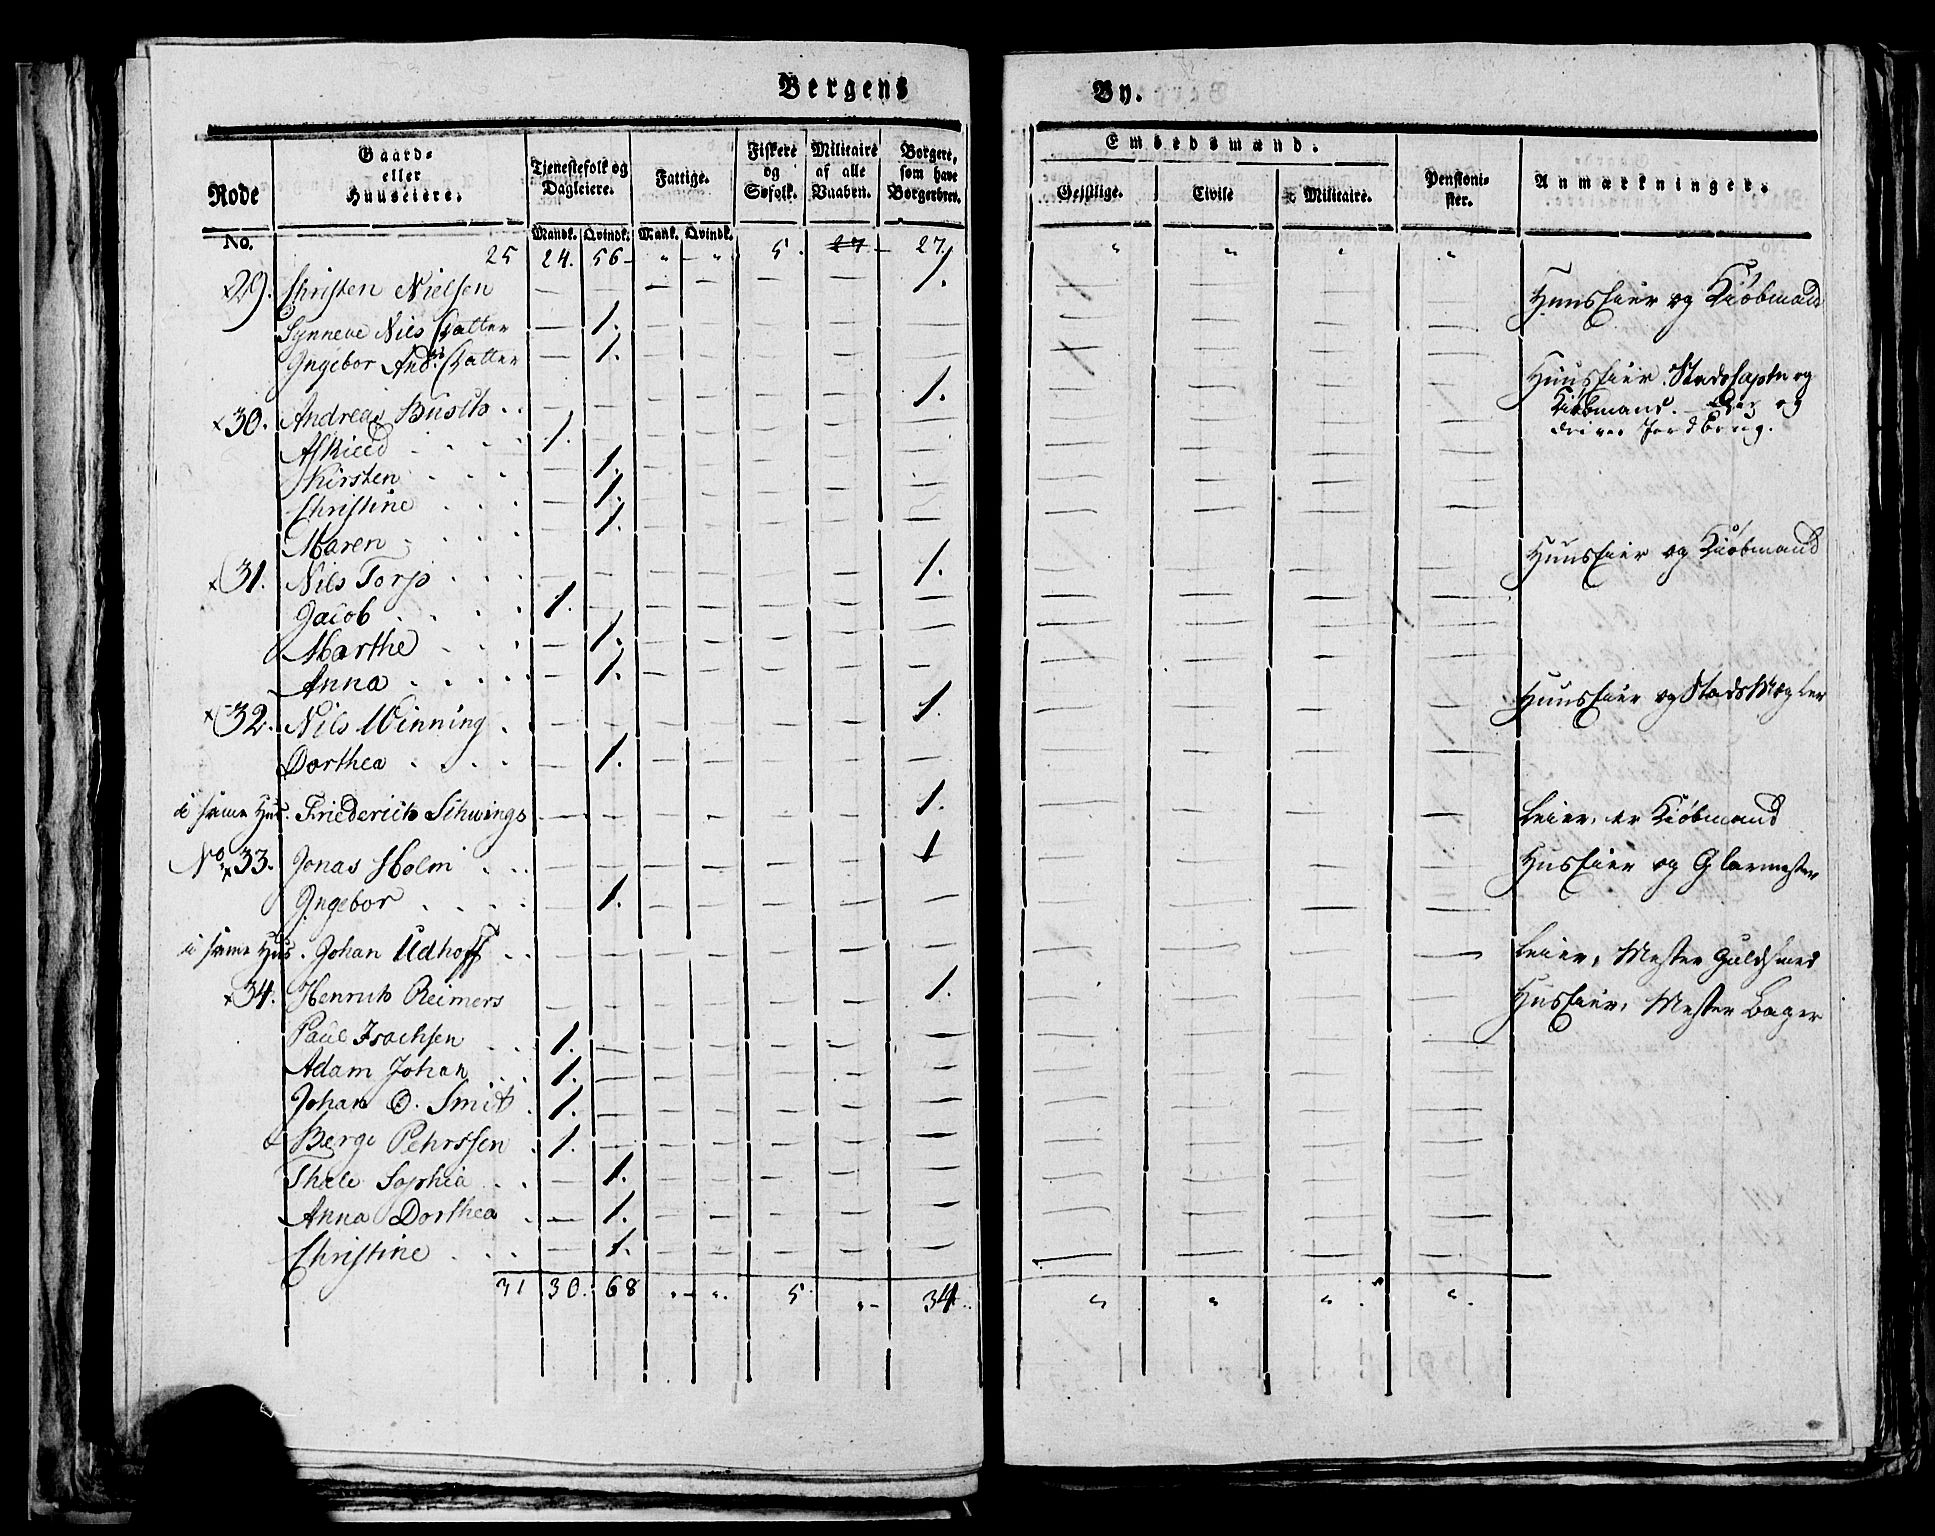 Bergens By.
Rode No. | Gaard- eller Huuseiere. | Tjenestefolk og Dagleiere. Mandk. Qvindk. | Fattige. Mank. Qvindk. | Fiskere og Søfolk. | Militaire af alle Vaaben. | Borgere, som have Borgerbrev. | Embedsmænd. Geistlige. Civile Militaire. | Pensionister. | Anmærkninger.
25 24. 56 - „ - „ 5. 27 - 27. „ „ „ „
x29. Christen Nielsen — — — — — — 1. Huuseier og Kiøbmand
Synneve Nils Datter — 1. — — — — —
Ingebor And: Datter — 1. — — — — —
x30. Andreas Busch . . — — — — — — 1. Huuseier. Stadscaptn og
Kiøbmand. og
driver Jordbrug.
1. — — — — — —
Kirsten . . . — 1. — — — — —
Christine . . . — 1. — — — — —
Maren . . . . — 1. — — — — —
x31. Nils Torp . . . — — — — — — 1. Huuseier og Kiøbmand
Jacob . . . 1. — — — — — —
Marthe . . . — 1. — — — — —
Anna . . . . . — 1. — — — — —
x32. Nils Winning . — — — — — — 1. Huuseier og Stads Mægler
Dorthea . . . . — 1. — — — — —
i samme Hus. Friederich Schwings — — — — — — 1. Leier, er Kiøbmand
No x33. Jonas Holm . . . — — — — — — 1 Huseier og Glarmester
Ingebor . . . . — 1. — — — — —
i samme Hus. Johan Udhoff . . — — — — — — — Leier, Mester Guldsmed
x34. Henrich Reimers — — — — — — 1. Huseier, Mester Bager
Paul Isachsen . . 1. — — — — — —
Adam Johan . . 1. — — — — — —
Johan D. Smit . 1. — — — — — —
Berge Pehrssen . 1. — — — — — —
Thale Sophia . . — 1. — — — — —
Anna Dorthea . — 1. — — — — —
Christine . . . — 1. — — — — —
31 30. 68 „ - „. 5 „ - 34. „ „ „ . „.